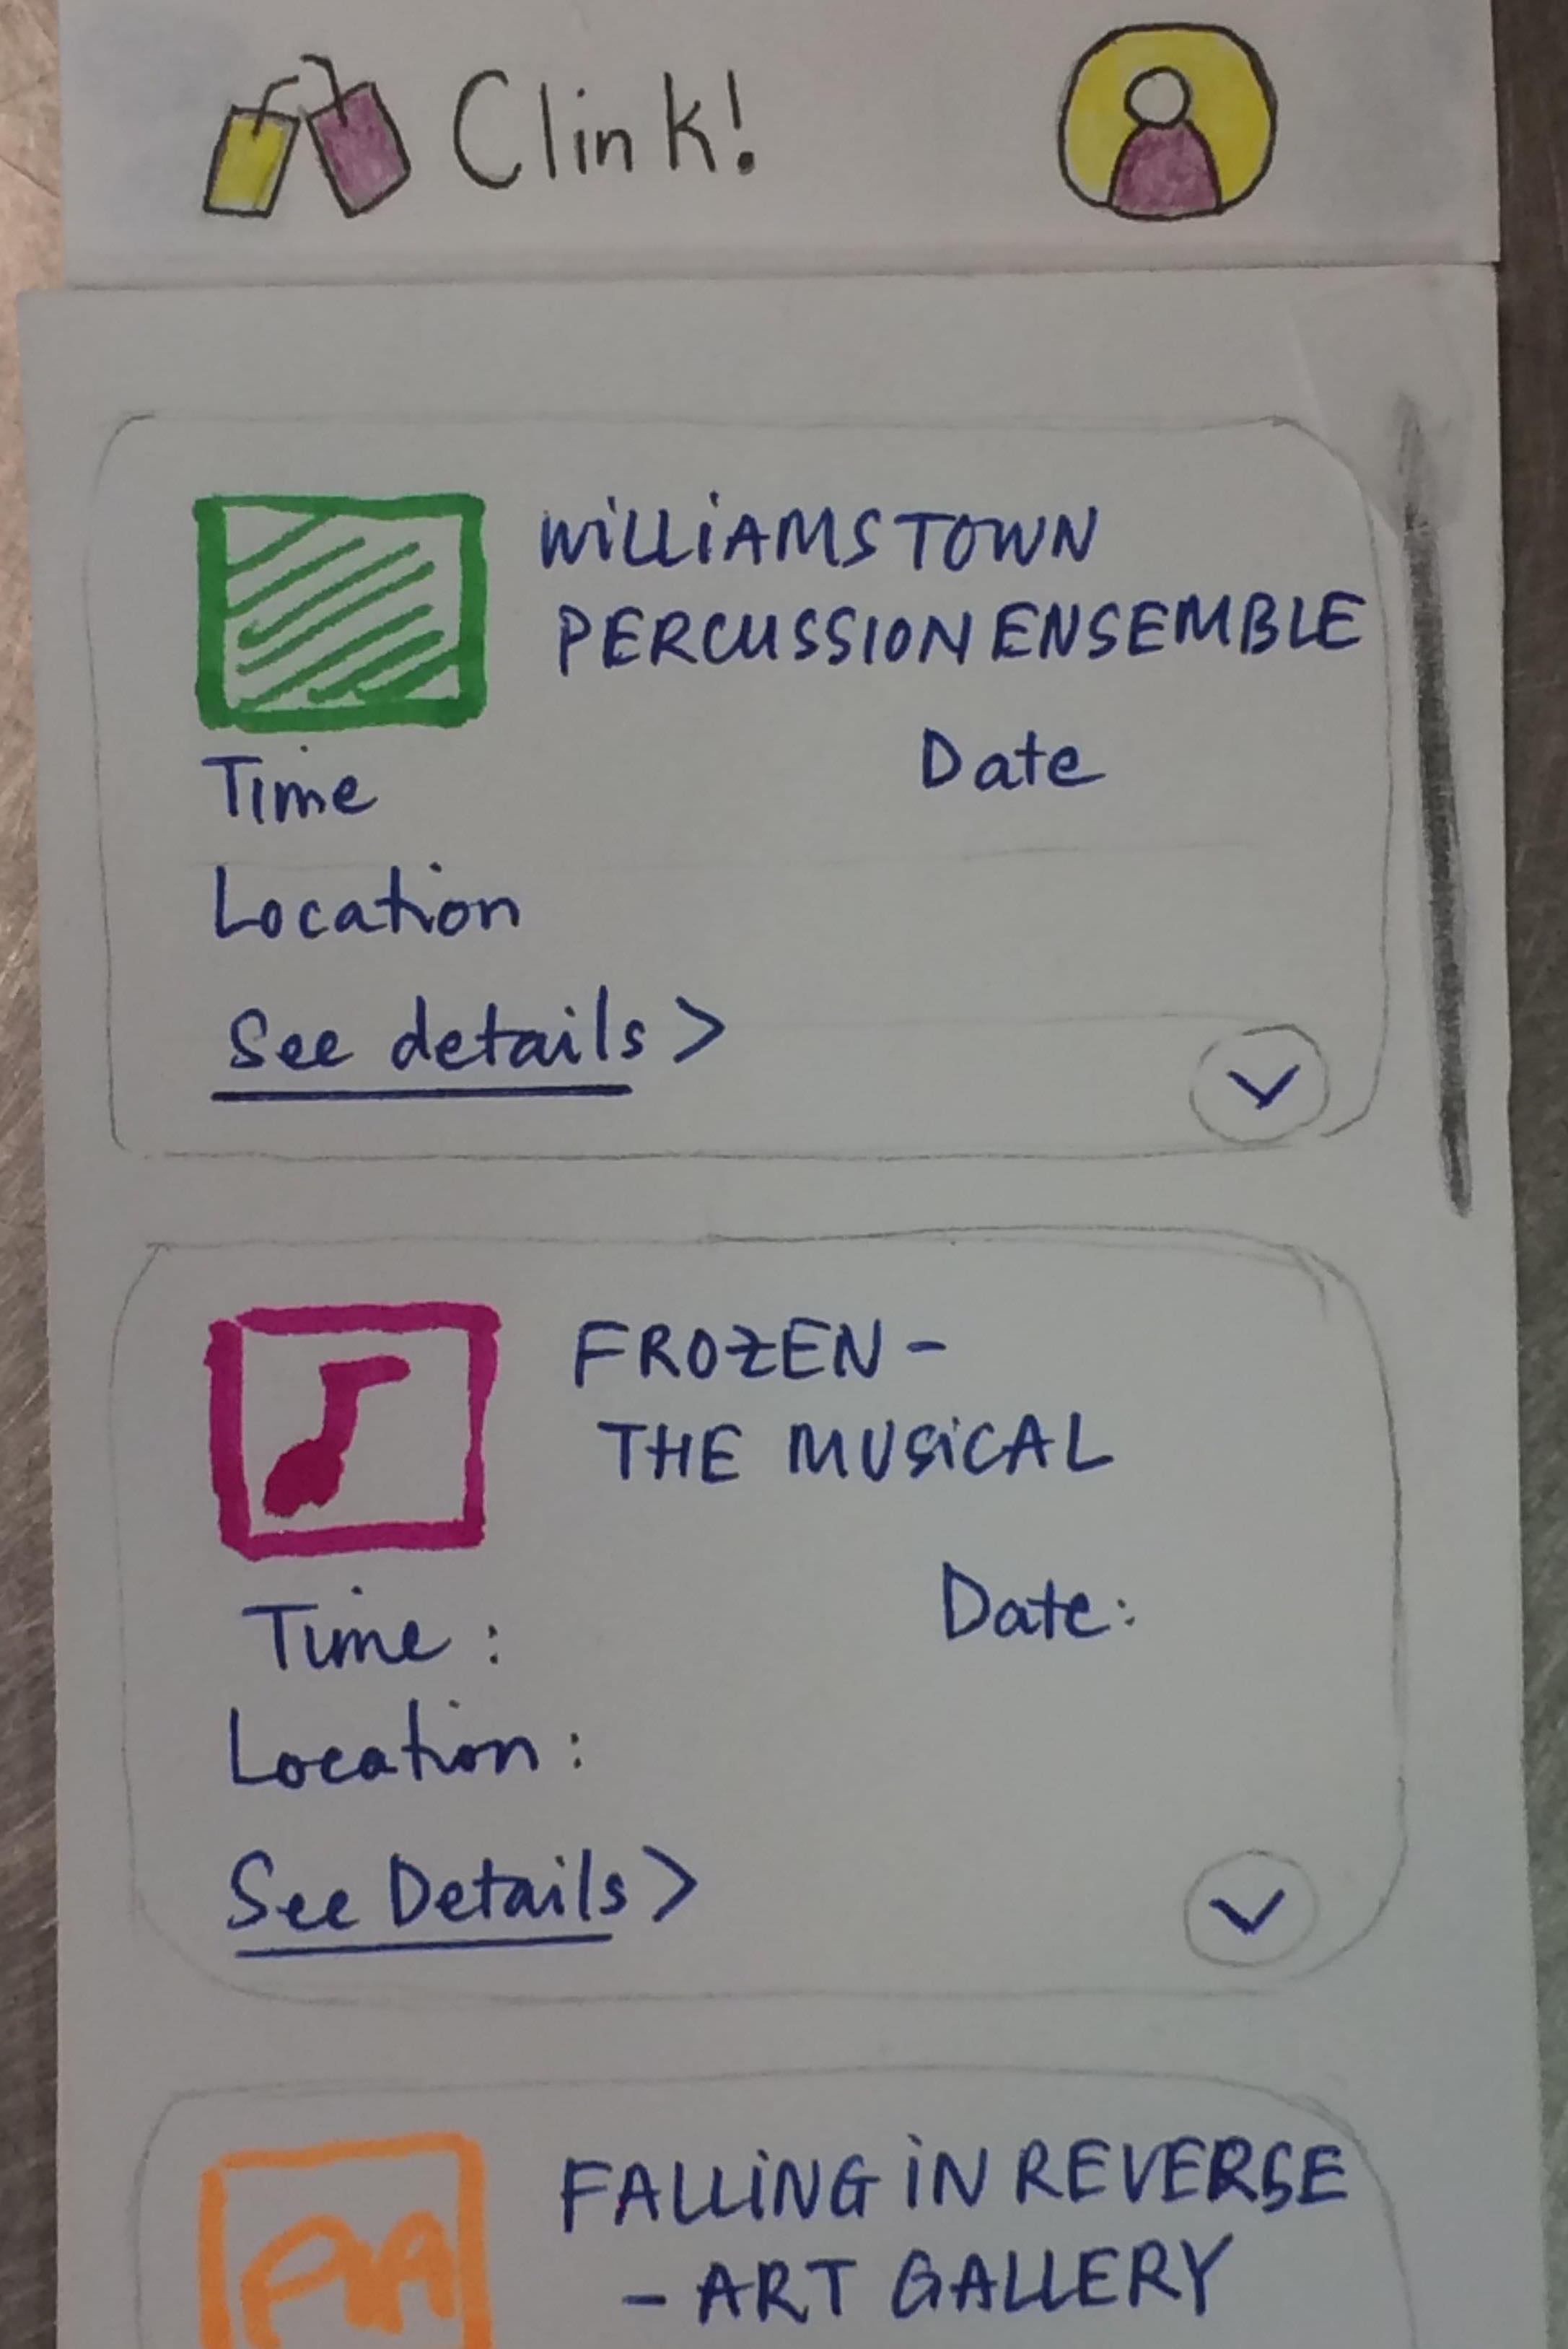 Clink!
WILLIAMSTOWN
PERCUSSION ENSEMBLE
Time Date
Location
See details >
FROZEN -
THE MUSICAL
Time : Date:
Location :
See Details >
FALLING IN REVERSE
- ART GALLERY